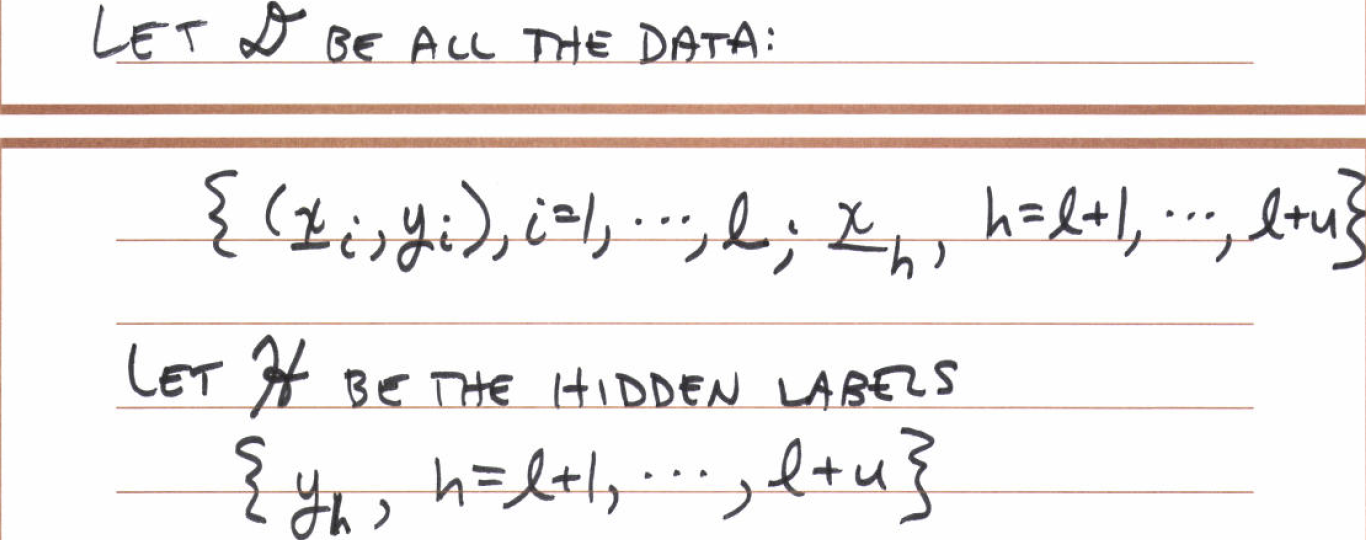 LET 𝒟 BE ALL THE DATA:
{ (x̲ᵢ, yᵢ), i=1, ..., l; x̲ₕ, h=l+1, ..., l+u}
LET ℋ BE THE HIDDEN LABELS
{ yₕ, h=l+1, ..., l+u}